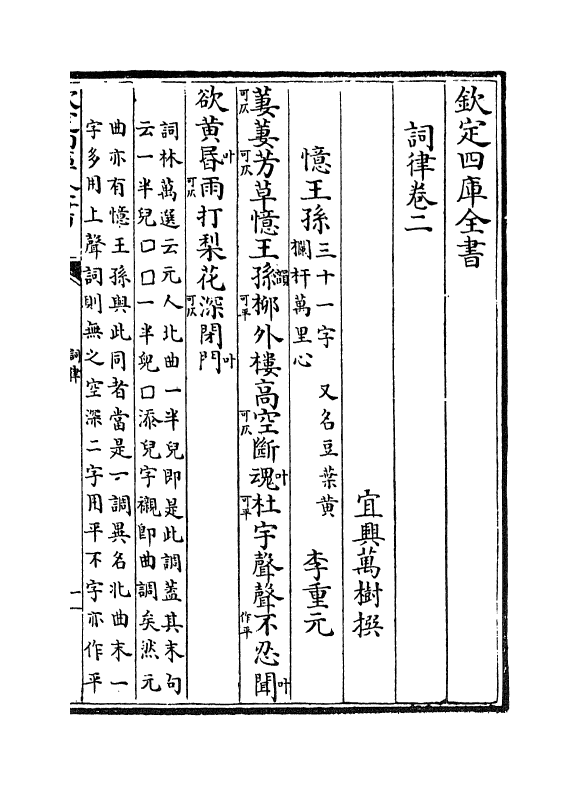 欽定四庫全書
詞律卷二
宜興萬樹撰
憶王孫三十一字 又名豆葉黄
欄杆萬里心
李重元
萋可仄萋芳可仄草憶王孫韻柳可平外樓高空可仄斷魂叶杜可平宇聲聲不作平忍聞叶
欲黄昬叶雨可仄打梨花深可仄閉門叶
詞林萬選云元人北曲一半兒即是此調葢其末句
云一半兒囗囗一半兒囗添兒字襯即曲調矣然元
曲亦有憶王孫與此同者當是一調異名北曲末一
字多用上聲詞則無之空深二字用平不字亦作平
詞律